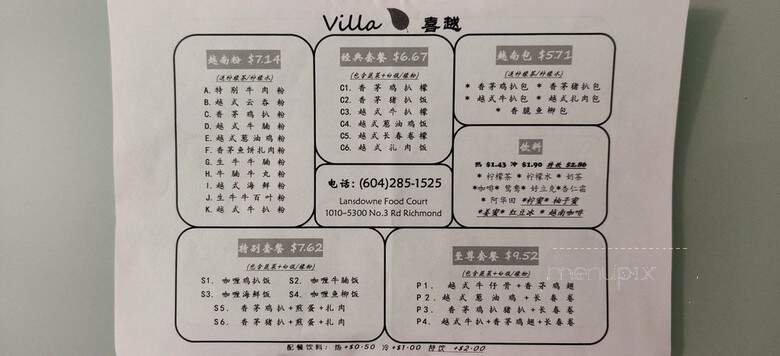 Villa 喜越
越南粉 $7.14
(送柠檬茶/柠檬水)
A. 特别牛肉粉
B. 越式云吞粉
C. 香茅鸡扒粉
D. 越式牛腩粉
E. 越式葱油鸡粉
F. 香茅鱼饼扎肉粉
G. 生牛牛腩粉
H. 牛腩牛丸粉
I. 越式海鲜粉
J. 生牛牛百叶粉
K. 越式牛扒粉
经典套餐 $6.67
(包含蔬菜+白饭/檬粉)
C1. 香茅鸡扒檬
C2. 香茅猪扒饭
C3. 越式牛扒檬
C4. 越式葱油鸡饭
C5. 越式长春卷檬
C6. 越式扎肉饭
越南包 $5.71
(送柠檬茶/柠檬水)
* 香茅鸡扒包 * 香茅猪扒包
* 越式牛扒包 * 越式扎肉包
* 香脆鱼柳包
电话: (604)285-1525
Lansdowne Food Court
1010-5300 No.3 Rd Richmond
饮料
热 $1.43 冷 $1.90 特饮 $2.86
* 柠檬茶 * 柠檬水 * 奶茶
*咖啡* 鸳鸯* 好立克*杏仁霜
* 阿华田 *柠蜜* 柚子蜜
*姜蜜* 红豆冰 * 越南咖啡
特别套餐 $7.62
(包含蔬菜+白饭/檬粉)
S1. 咖喱鸡扒饭 S2. 咖喱牛腩饭
S3. 咖喱海鲜饭 S4. 咖喱鱼柳饭
S5. 香茅鸡扒+煎蛋+扎肉
S6. 香茅猪扒+煎蛋+扎肉
至尊套餐 $9.52
(包含蔬菜+白饭/檬粉)
P1. 越式牛仔骨+香茅鸡翅
P2. 越式葱油鸡+长春卷
P3. 香茅鸡扒猪扒+长春卷
P4. 越式牛扒+香茅鸡翅+长春卷
menupix
配餐饮料: 热+$0.50 冷+$1.00 特饮 +$2.00